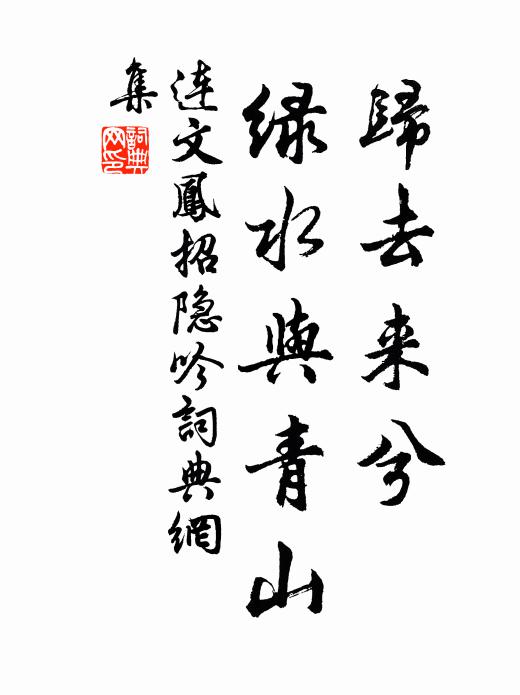 歸去来兮
緑水與青山
連文鳳招隐吟詞典網
集
詞典
网印